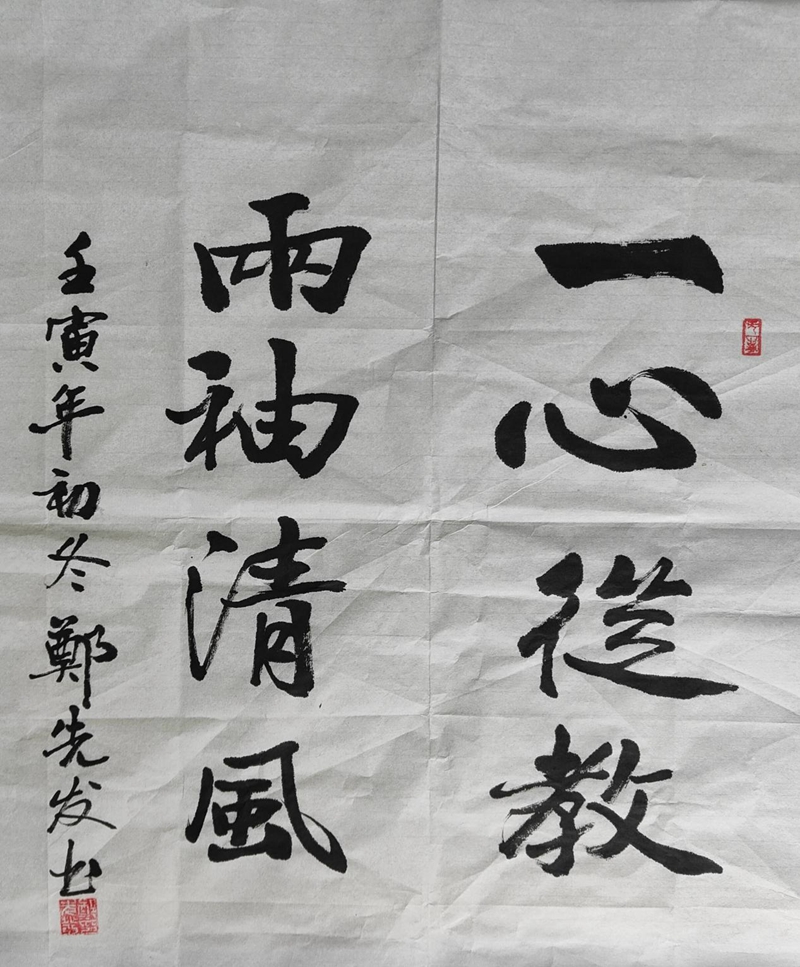 一心從教
兩袖清風
壬寅年初冬鄭先发书